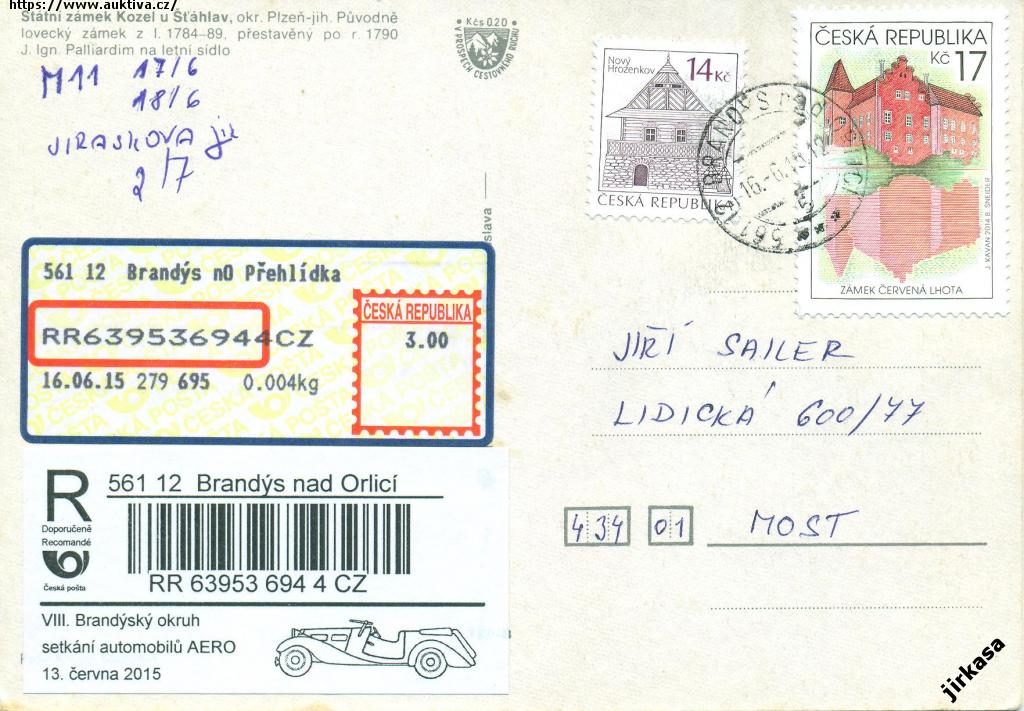 https://www.auktiva.cz/
Státní zámek Kozel u Šťáhlav, okr. Plzeň-jih. Původně
lovecký zámek z l. 1784–89, přestavěný po r. 1790
J. Ign. Palliardim na letní sídlo
Kčs 0.20
V PROSPĚCH CESTOVNÍHO RUCHU
M11 17/6
18/6
JIRASKOVA
2/7
Nový
Hrozenkov
14 Kč
ČESKÁ REPUBLIKA
ČESKÁ REPUBLIKA
Kč 17
J. KAVAN 2014 B. ŠNEIDER
ZÁMEK ČERVENÁ LHOTA
561 12
16.-6.15.12
slava
561 12 Brandýs nO Přehlídka
RR639536944CZ
16.06.15 279 695 0.004kg
ČESKÁ REPUBLIKA
3.00
JIŘÍ SAILER
LIDICKÁ 600/77
434 01 MOST
R
Doporučeně
Recomandé
Česká pošta
561 12 Brandýs nad Orlicí
RR 63953 694 4 CZ
VIII. Brandýský okruh
setkání automobilů AERO
13. června 2015
jirkasa